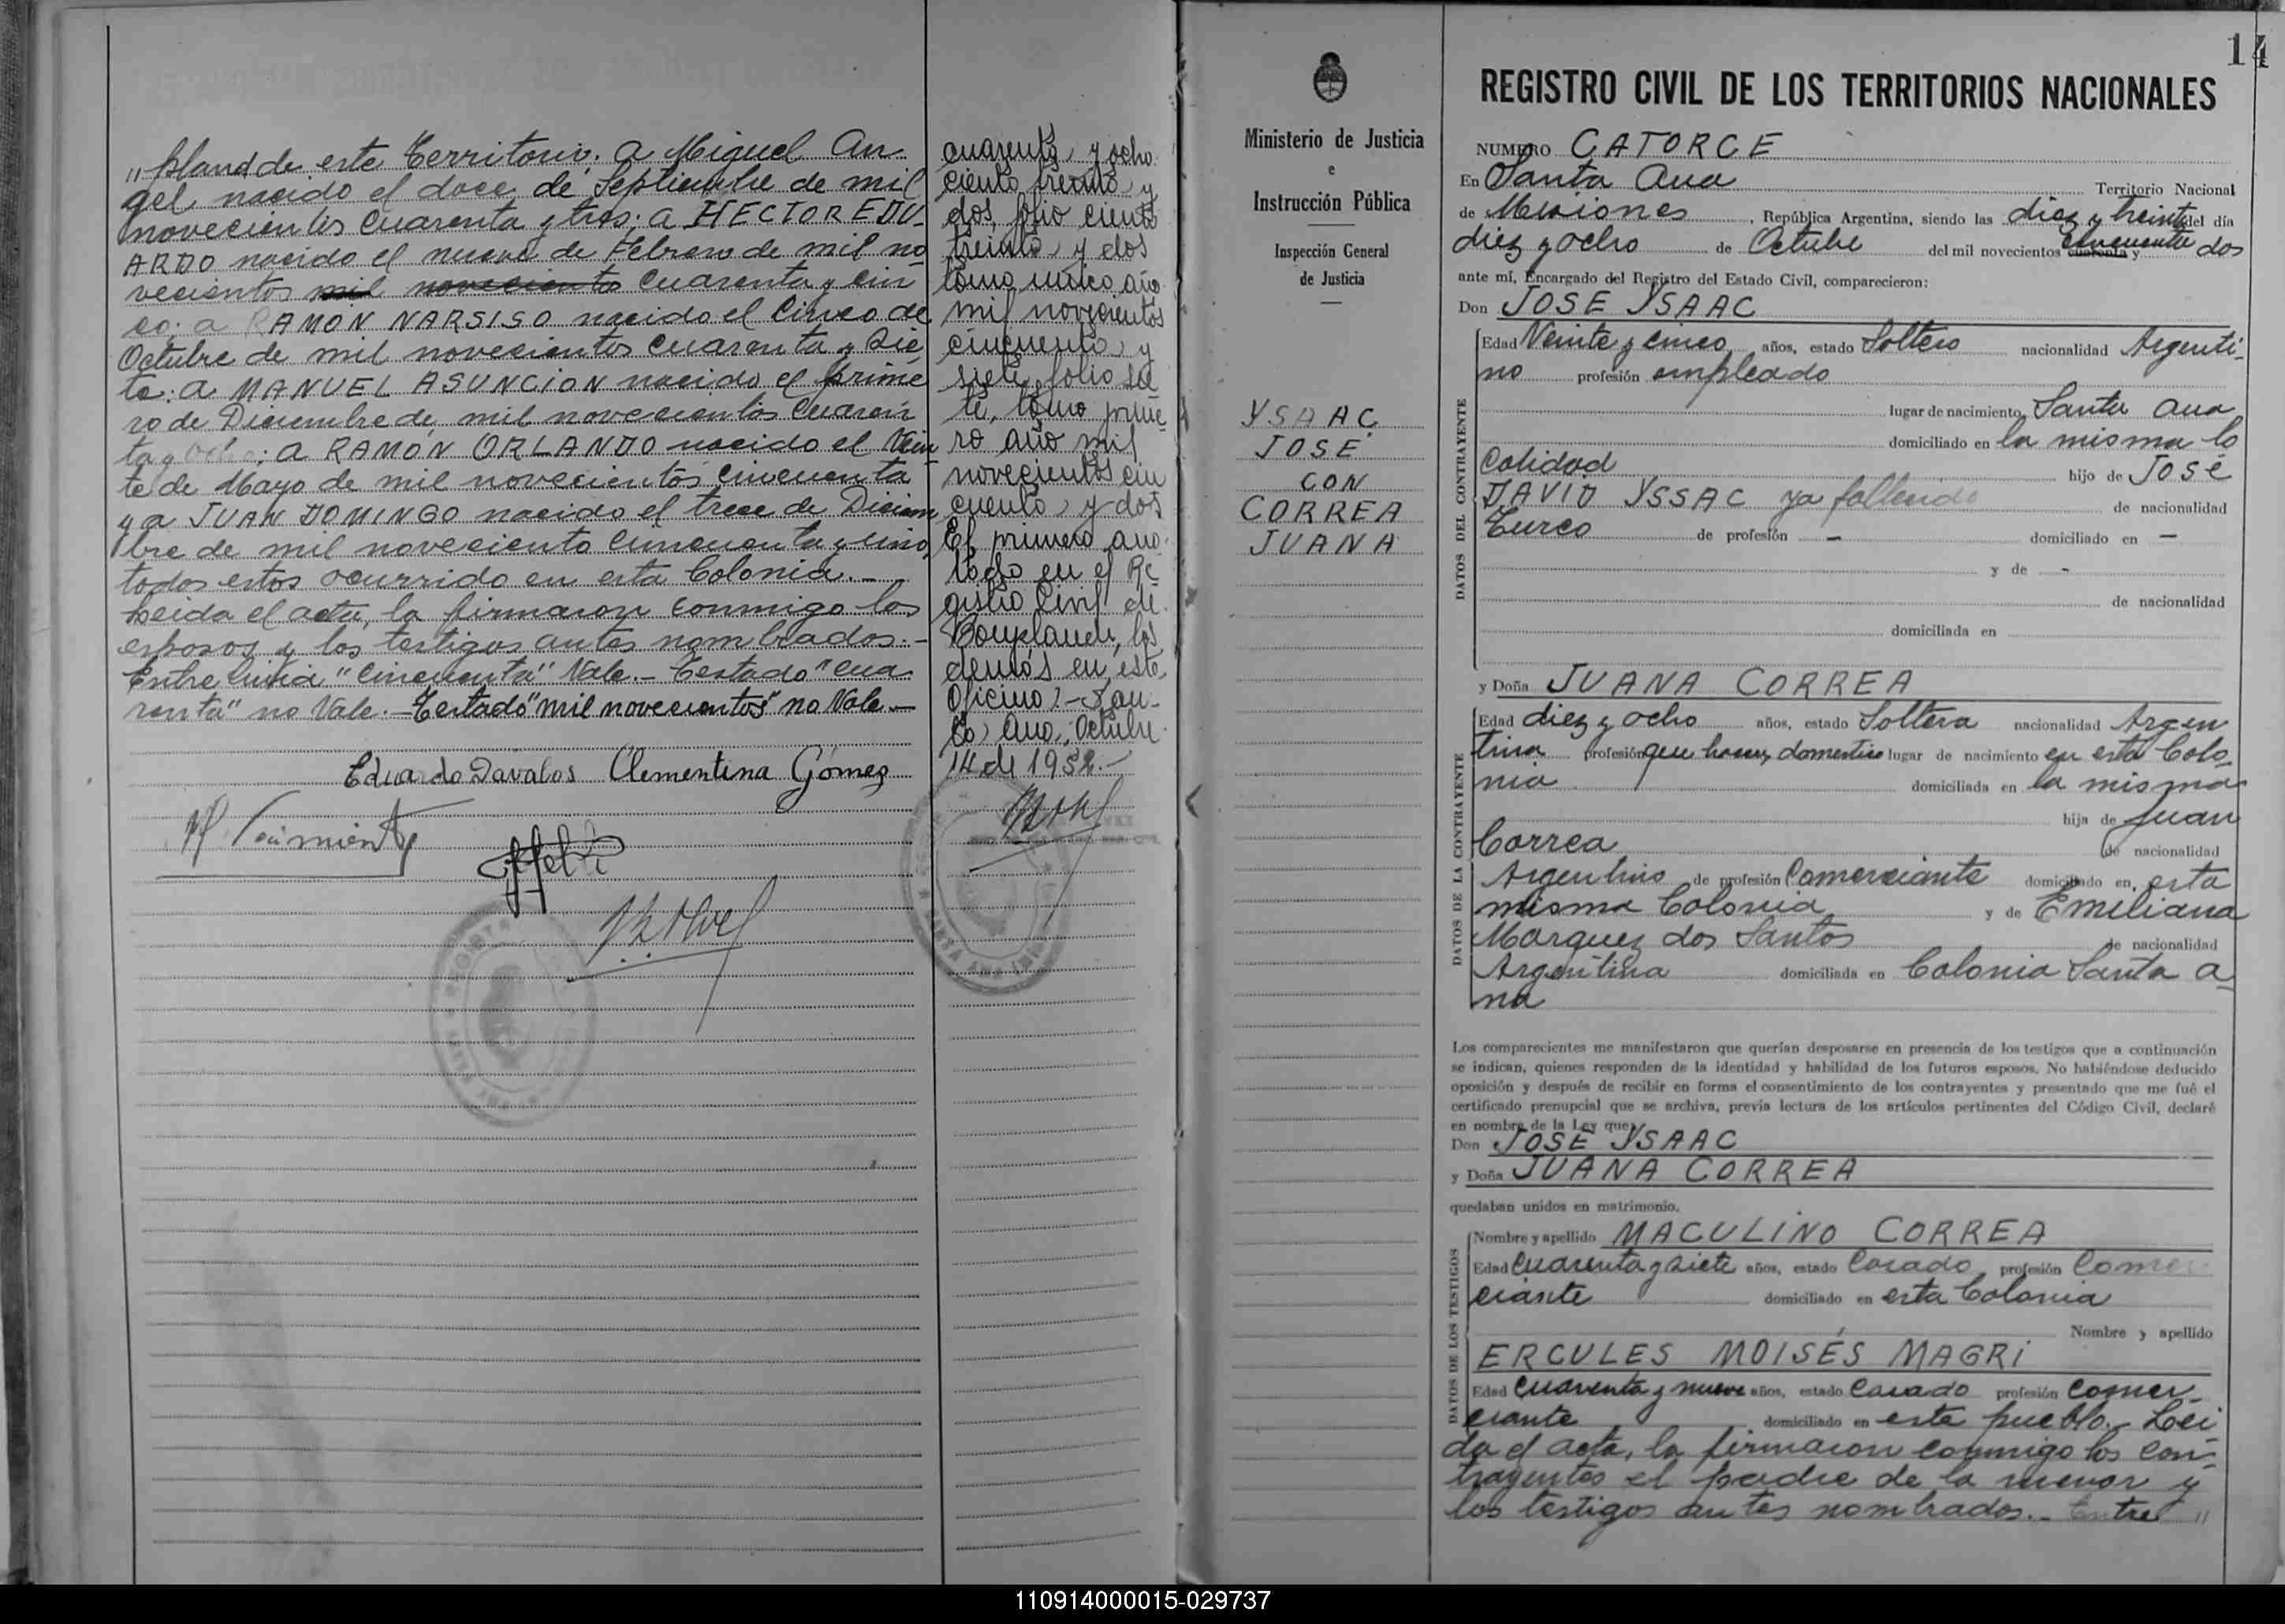 "pland de este Territorio: a Miguel An
gel nacido el doce de Septiembre de mil
novecientos cuarenta y tres; a HECTOR EDU-
ARDO nacido el nueve de Febrero de mil no
vecientos mil novecientos cuarenta y cin
co; a RAMON NARSISO nacido el Cinco de
Octubre de mil novecientos cuarenta y sie
te: a MANUEL ASUNCION nacido el prime
ro de Diciembre de mil novecientos cuaren
ta y ocho: a RAMÓN ORLANDO nacido el Vein
te de Mayo de mil novecientos cincuenta
y a JUAN DOMINGO nacido el trece de Diciem
bre de mil novecientos cincuenta y uno,
todos estos ocurrido en esta Colonia.-
Leida el acta, la firmaron conmigo los
esposos y los testigos antes nombrados.-
Entre linia "cincuenta" Vale.- Testado "cua
renta" no Vale.- Testado "mil novecientos" no Vale.-
Eduardo Davalos Clementina Gómez
cuarenta y ocho
ciento treinta y
dos, folio ciento
treinta y dos
tomo unico, año
mil novecientos
cincuenta y
siete, folio sie
te, tomo prime-
ro año mil
novecientos cin
cuenta y dos
El primero ano-
tado en el Re-
gistro Civil de
Bonpland, los
demás en esta
Oficina.- San-
ta Ana, Octubre
14 de 1952.-
Ministerio de Justicia
e
Instrucción Pública
Inspección General
de Justicia
YSAAC
JOSÉ
CON
CORREA
JUANA
14
REGISTRO CIVIL DE LOS TERRITORIOS NACIONALES
NUMERO CATORCE
En Santa Ana Territorio Nacional
de Misiones, República Argentina, siendo las diez y treinta del día
diez y ocho de Octubre del mil novecientos cuarenta y cincuenta dos
ante mí, Encargado del Registro del Estado Civil, comparecieron:
Don JOSE YSAAC
Edad Veinte y cinco años, estado Soltero nacionalidad Argenti-
no profesión empleado
lugar de nacimiento Santa Ana
domiciliado en la misma lo
calidad hijo de José
DAVID YSSAC ya fallecido de nacionalidad
Turco de profesión - domiciliado en -
y de -
de nacionalidad
domiciliada en
y Doña JUANA CORREA
Edad diez y ocho años, estado Soltera nacionalidad Argen
tina profesión que haceres domestico lugar de nacimiento en esta Colo-
nia domiciliada en la misma
hija de Juan
Correa de nacionalidad
Argentino de profesión Comerciante domiciliado en esta
misma Colonia y de Emiliana
Marquez dos Santos de nacionalidad
Argentina domiciliada en Colonia Santa A-
na
DATOS DEL CONTRAYENTE
DATOS DE LA CONTRAYENTE
Los comparecientes me manifestaron que querían desposarse en presencia de los testigos que a continuación
se indican, quienes responden de la identidad y habilidad de los futuros esposos. No habiéndose deducido
oposición y después de recibir en forma el consentimiento de los contrayentes y presentado que me fué el
certificado prenupcial que se archiva, previa lectura de los artículos pertinentes del Código Civil, declaré
en nombre de la Ley que
Don JOSE YSAAC
y Doña JUANA CORREA
quedaban unidos en matrimonio.
DATOS DE LOS TESTIGOS
Nombre y apellido MACULINO CORREA
Edad cuarenta y siete años, estado Casado profesión Comer
ciante domiciliado en esta Colonia
Nombre y apellido
ERCULES MOISÉS MAGRI
Edad cuarenta y nueve años, estado Casado profesión Comer-
ciante domiciliado en este pueblo.- Leí
da el acta, la firmaron conmigo los con-
trayentes el padre de la menor y
los testigos antes nombrados.- Entre "
110914000015-029737